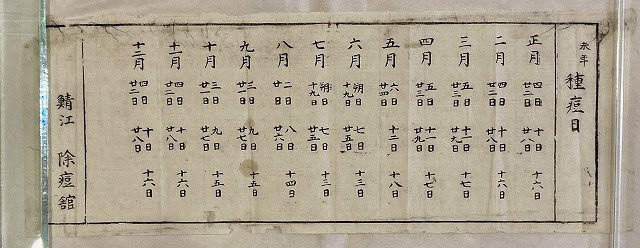 未年 種痘日
正月 四日 十日 十六日
廿二日 廿八日
二月 四日 十日 十六日
廿二日 廿八日
三月 五日 十一日 十七日
廿三日 廿九日
四月 五日 十一日 十七日
廿三日 廿九日
五月 六日 十二日 十八日
廿四日
六月 朔日 七日 十三日
十九日 廿五日
七月 朔日 七日 十三日
十九日 廿五日
八月 二日 八日 十四日
廿日 廿六日
九月 三日 九日 十五日
廿一日 廿七日
十月 三日 九日 十五日
廿一日 廿七日
十一月 四日 十日 十六日
廿二日 廿八日
十二月 四日 十日 十六日
廿二日 廿八日
鯖江 除痘館